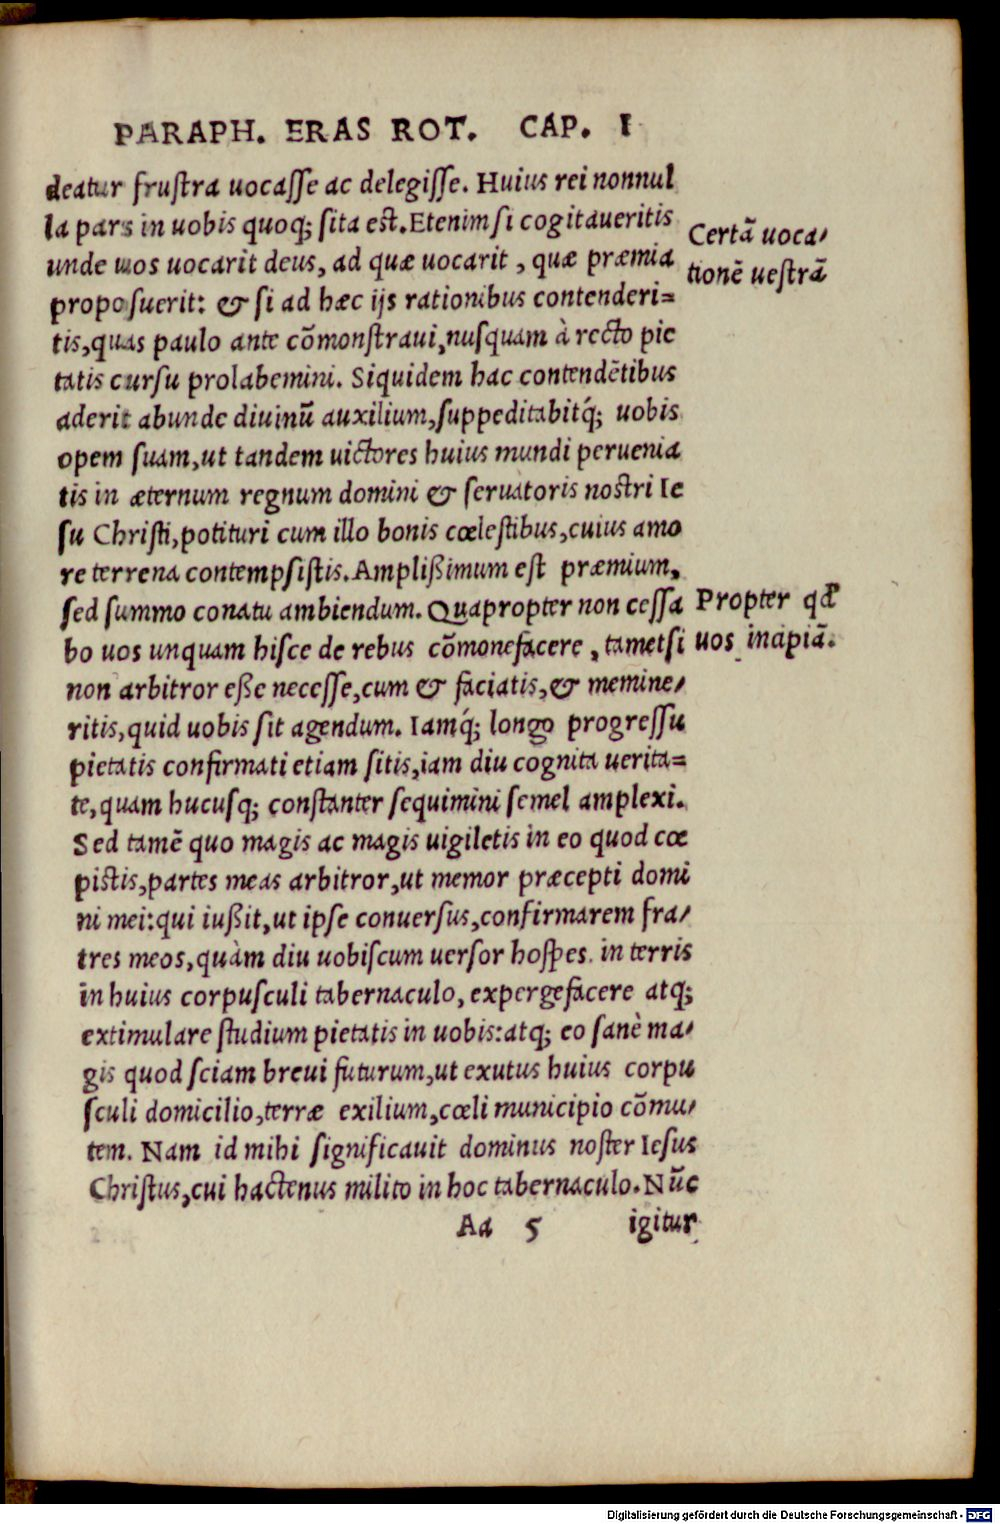 PARAPH. ERAS ROT. CAP. I
deatur frustra uocasse ac delegisse. Huius rei nonnul
la pars in uobis quoq; sita est. Etenim si cogitaueritis
Certã uoca/
unde uos uocarit deus, ad quæ uocarit, quæ præmia
tionẽ uestrã
proposuerit: & si ad hæc ijs rationibus contenderi=
tis, quas paulo ante cõmonstraui, nusquam à recto pie
tatis cursu prolabemini. Siquidem hac contendẽtibus
aderit abunde diuinũ auxilium, suppeditabitq́; uobis
opem suam, ut tandem uictores huius mundi peruenia
tis in æternum regnum domini & seruatoris nostri Ie
su Christi, potituri cum illo bonis cœlestibus, cuius amo
re terrena contempsistis. Amplißimum est præmium,
sed summo conatu ambiendum. Quapropter non cessa
Propter qđ
bo uos unquam hisce de rebus cõmonefacere, tametsi
uos incipiã.
non arbitror eße necesse, cum & faciatis, & memine/
ritis, quid uobis sit agendum. Iamq́; longo progressu
pietatis confirmati etiam sitis, iam diu cognita uerita=
te, quam hucusq; constanter sequimini semel amplexi.
Sed tamẽ quo magis ac magis uigiletis in eo quod cœ
pistis, partes meas arbitror, ut memor præcepti domi
ni mei: qui iußit, ut ipse conuersus, confirmarem fra/
tres meos, quàm diu uobiscum uersor hospes in terris
in huius corpusculi tabernaculo, expergefacere atq;
extimulare studium pietatis in uobis: atq; eo sanè ma/
gis quod sciam breui futurum, ut exutus huius corpu
sculi domicilio, terræ exilium, cœli municipio cõmu/
tem. Nam id mihi significauit dominus noster Iesus
Christus, cui hactenus milito in hoc tabernaculo. Nũc
Aa 5 igitur
Digitalisierung gefördert durch die Deutsche Forschungsgemeinschaft - DFG